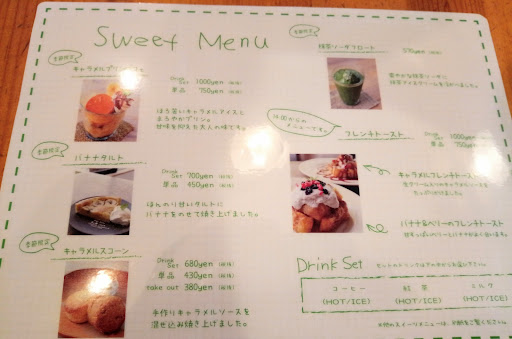 Sweet Menu
季節限定
キャラメルプリン
Drink Set 1000yen (税抜)
単品 750yen (税抜)
ほろ苦いキャラメルアイスと
まろやかプリン。
甘味を抑えた大人の味です。
季節限定
バナナタルト
Drink Set 700yen (税抜)
単品 450yen (税抜)
ほんのり甘いタルトに
バナナをのせて焼き上げました。
季節限定
キャラメルスコーン
Drink Set 680yen (税抜)
単品 430yen (税抜)
take out 380yen (税抜)
手作りキャラメルソースを
混ぜ込み焼き上げました。
季節限定
抹茶ソーダフロート
570yen
爽やかな抹茶ソーダに
抹茶アイスクリームをうかべました。
14時からの
メニューです。
フレンチトースト
Drink Set 1000yen
単品 750yen
キャラメルフレンチトースト
バナナ&ベリーのフレンチトースト
甘ずっぱいベリーとバナナがよく合います。
Drink Set
コーヒー (HOT/ICE)
紅茶 (HOT/ICE)
ミルク (HOT/ICE)